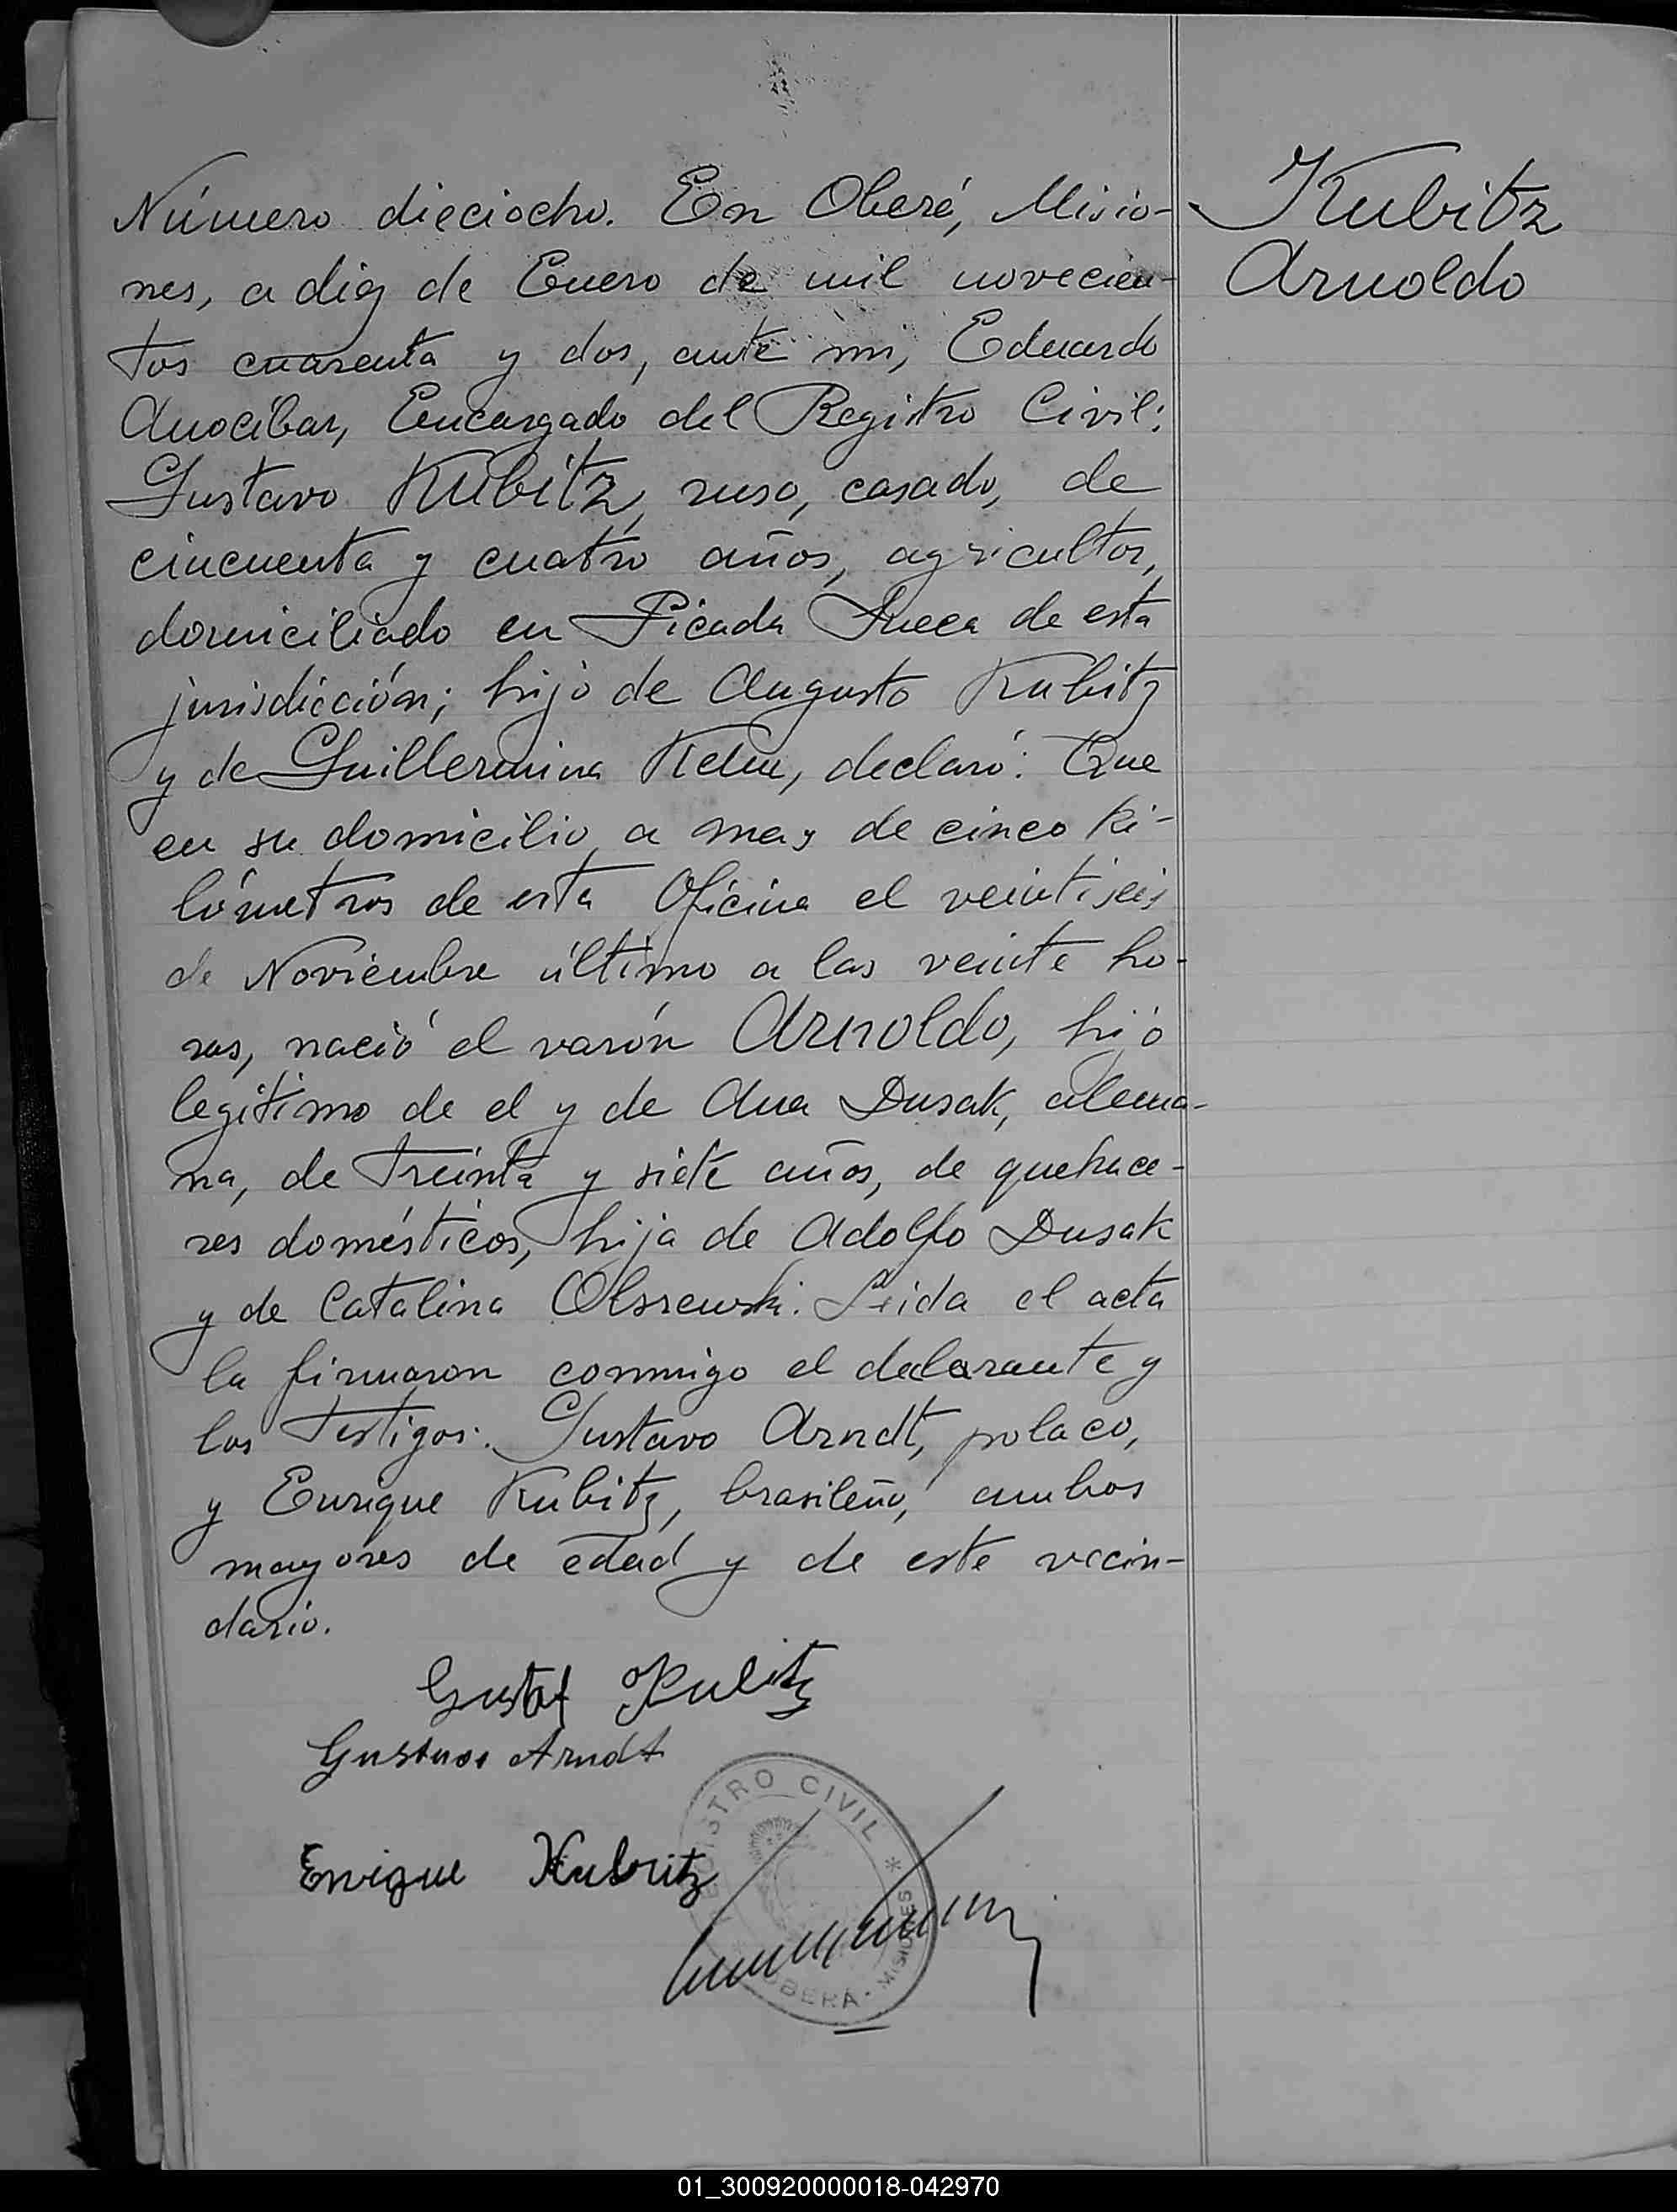 Número dieciocho. En Oberá, Misio-
nes, a diez de Enero de mil novecien-
tos cuarenta y dos, ante mi, Eduardo
Anocíbar, Encargado del Registro Civil;
Gustavo Kubitz, ruso, casado, de
cincuenta y cuatro años, agricultor,
domiciliado en Picada Sueca de esta
jurisdicción; hijo de Augusto Kubitz
y de Guillermina declaró: Que
en su domicilio a mas de cinco ki-
lómetros de esta Oficina el veintiseis
de Noviembre último a las veinte ho-
ras, nació el varón Arnoldo, hijo
legitimo de el y de Ana Dusak, alema-
na, de treinta y siete años, de quehace-
res domésticos, hija de Adolfo Dusak
y de Catalina Olsrewski. Leida el acta
la firmaron conmigo el declarante y
los testigos: Gustavo Arndt, polaco,
y Enrique Kubitz, brasileño, ambos
mayores de edad y de este vecin-
dario.
Kubitz
Arnoldo
Gustaf Kubitz
Gustavo Arndt
Enrique Kubitz
REGISTRO CIVIL * OBERÁ - MISIONES
01_300920000018-042970